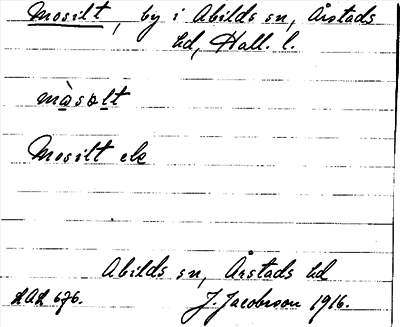 Mosilt, by i Abilds sn, Årstads
hd, Hall. l.
màsəlt
Mosilt ek
Abilds sn, Årstads hd
LAL 676. J. Jacobsson 1916.